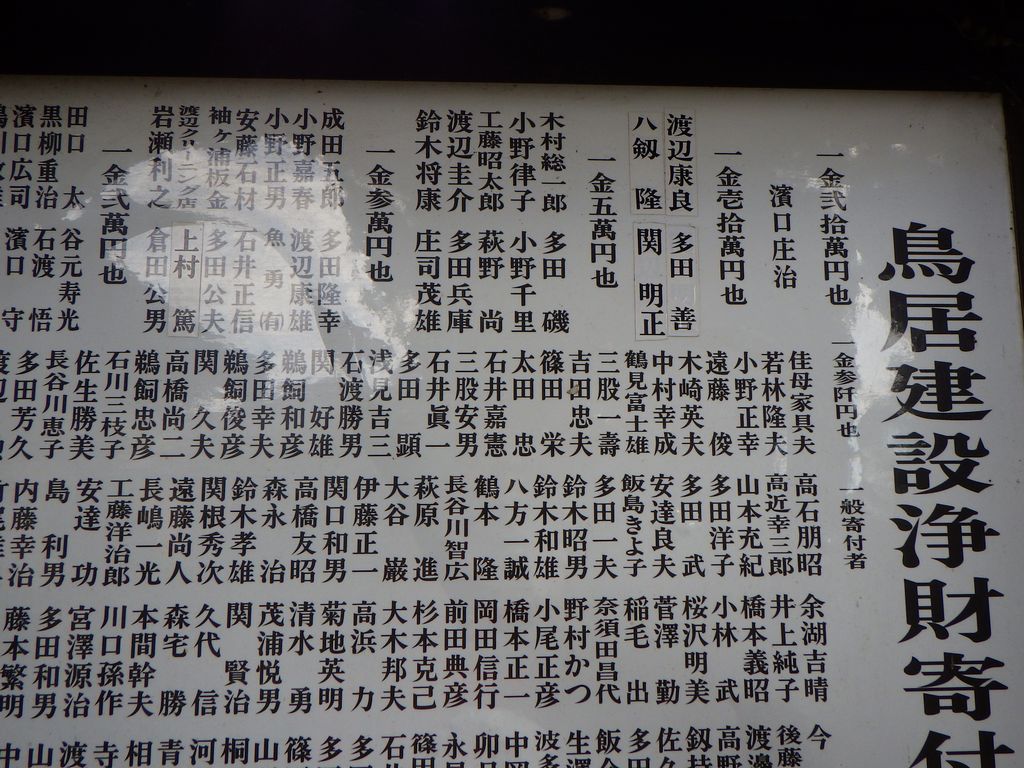 鳥居建設浄財寄付
一金弐拾萬円也
濱口庄治
一金壱拾萬円也
渡辺康良 多田 善
八剱 隆 関 明正
一金五萬円也
木村総一郎 多田 磯
小野律子 小野千里
工藤昭太郎 萩野 尚
渡辺圭介 多田兵庫
鈴木将康 庄司茂雄
一金参萬円也
成田五郎 多田隆幸
小野嘉春 渡辺康雄
小野正男 魚勇(有)
安藤石材 石井正信
袖ヶ浦板金 多田公夫
渡辺クリーニング店 上村 篤
岩瀬利之 倉田公男
一金弐萬円也
田口 太 谷元寿光
黒柳重治 石渡 悟
濱口広司 濱口 守
一金参阡円也 一般寄付者
佳母家具夫 高石朋昭 余湖吉晴 今
若林隆夫 高近幸三郎 井上純子 後藤
小野正幸 山本充紀 橋本義昭 渡邊
遠藤 俊 多田洋子 小林 武 高野
木崎英夫 多田 武 桜沢明美 釼持
中村幸成 安達良夫 菅澤 勤 佐久
鶴見富士雄 飯島きよ子 稲毛 出 多田
三股一壽 多田一夫 奈須田昌代 飯
吉田忠夫 鈴木昭男 野村かつ 生
篠田 栄 鈴木和雄 小尾正彦 波多
太田 忠 八方一誠 橋本正一 中
石井嘉憲 鶴本 隆 岡田信行 卯
三股安男 長谷川智広 前田典彦 永
石井眞一 萩原 進 杉本克己 篠
多田 顕 大谷 巌 大木邦夫 石
浅見吉三 伊藤正一 高浜 力 多
石渡勝男 関口和男 菊地英明 多
関 好雄 高橋友昭 清水 勇 篠
鵜飼和彦 森永 治 茂浦悦男 山
多田幸夫 鈴木孝雄 関 賢治 桐
鵜飼俊彦 関根秀次 久代 信 河
関 久夫 遠藤尚人 森宅 勝 青
高橋尚二 長嶋一光 本間幹夫 相
鵜飼忠彦 工藤洋治郎 川口孫作 寺
石川三枝子 安達 功 宮澤源治 渡
佐生勝美 島 利男 多田和男 山
長谷川恵子 内藤幸治 藤本繁明 中
多田芳久